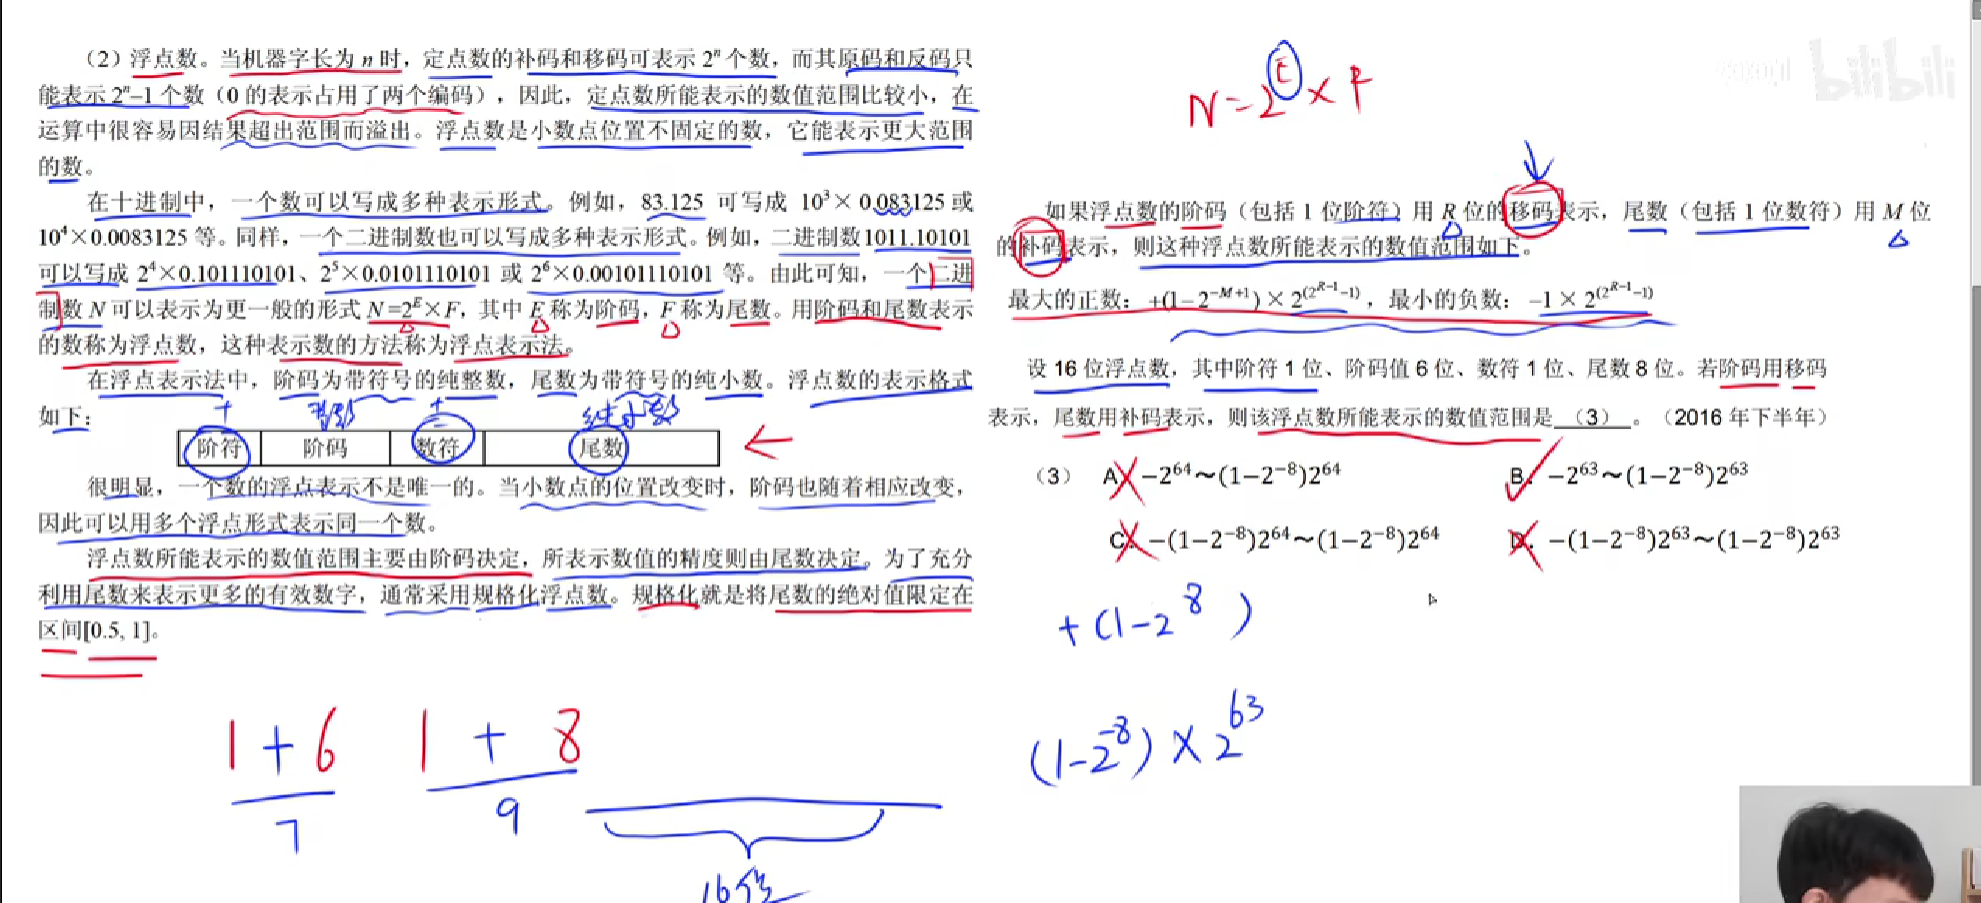 (2)浮点数。当机器字长为 n 时,定点数的补码和移码可表示 2ⁿ 个数,而其原码和反码只
能表示 2ⁿ–1 个数(0 的表示占用了两个编码),因此,定点数所能表示的数值范围比较小,在
运算中很容易因结果超出范围而溢出。浮点数是小数点位置不固定的数,它能表示更大范围
的数。
在十进制中,一个数可以写成多种表示形式。例如,83.125 可写成 10³×0.083125 或
10⁴×0.0083125 等。同样,一个二进制数也可以写成多种表示形式。例如,二进制数 1011.10101
可以写成 2⁴×0.101110101、2⁵×0.0101110101 或 2⁶×0.00101110101 等。由此可知,一个二进
制数 N 可以表示为更一般的形式 N=2ᴱ×F,其中 E 称为阶码,F 称为尾数。用阶码和尾数表示
的数称为浮点数,这种表示数的方法称为浮点表示法。
在浮点表示法中,阶码为带符号的纯整数,尾数为带符号的纯小数。浮点数的表示格式
如下:
+ ± 纯小数
阶符 阶码 数符 尾数
很明显,一个数的浮点表示不是唯一的。当小数点的位置改变时,阶码也随着相应改变,
因此可以用多个浮点形式表示同一个数。
浮点数所能表示的数值范围主要由阶码决定,所表示数值的精度则由尾数决定。为了充分
利用尾数来表示更多的有效数字,通常采用规格化浮点数。规格化就是将尾数的绝对值限定在
区间[0.5, 1]。
1+6 1+8
7 9
16位
bilibili
N=2ᴱ×F
如果浮点数的阶码(包括 1 位阶符)用 R 位的移码表示,尾数(包括 1 位数符)用 M 位
的补码表示,则这种浮点数所能表示的数值范围如下。
最大的正数:+(1−2^(−M+1))×2^(2^(R−1)−1),最小的负数:−1×2^(2^(R−1)−1)
设 16 位浮点数,其中阶符 1 位、阶码值 6 位、数符 1 位、尾数 8 位。若阶码用移码
表示,尾数用补码表示,则该浮点数所能表示的数值范围是 (3) 。(2016 年下半年)
(3) A. −2⁶⁴~(1−2⁻⁸)2⁶⁴ B. −2⁶³~(1−2⁻⁸)2⁶³
C. −(1−2⁻⁸)2⁶⁴~(1−2⁻⁸)2⁶⁴ D. −(1−2⁻⁸)2⁶³~(1−2⁻⁸)2⁶³
+(1−2⁸)
(1−2⁻⁸)×2⁶³